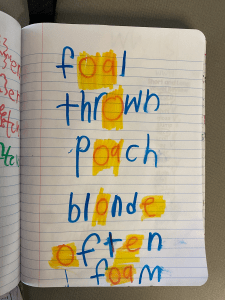 foal
thrown
poach
blonde
often
foam